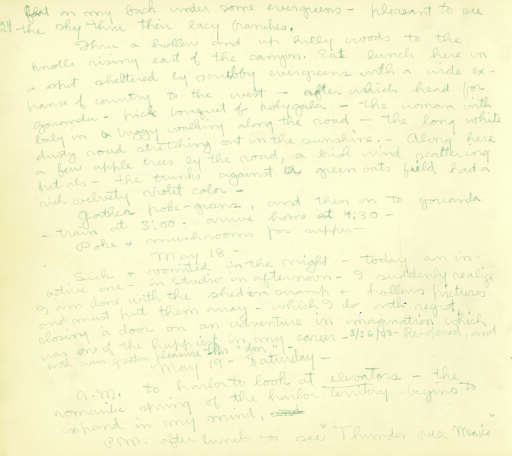 flat on my back under some evergreens - pleasant to see
24 - the sky thru their lacy branches.
Thru a hollow and up hilly woods to the
knolls rising east of the canyon. Eat lunch here in
a spot sheltered by scrubby evergreens with a wide ex-
panse of country to the west - after which head for
gowanda - pick bouquet of polygala - The woman with
baby in a buggy walking along the road - the long white
dusty road stretching out in the sunshine. - Along here
a few apple trees by the road, a brisk wind scattering
petals - The trunks against the green oats field had a
red velvety violet color -
Gather poke-greens, and then on to gowanda
- train at 3:00 - arrive home at 4:30 -
Poke & mushrooms for supper -
May 18 -
Sick & vomited in the night - today an in-
active one - in studio in afternoon - I suddenly realize
I am done with the shed in swamp & hollow pictures
and must put them away - which I do with regret,
closing a door on an adventure in imagination which
was one of the happiest in my career - Reviewed, and
with even greater pleasure
May 19 - Saturday -
A.M. to harbor to look at elevators - the
romantic spring of the harbor territory begins to
expand in my mind.
P.M. after lunch to see "Thunder over Mexico"